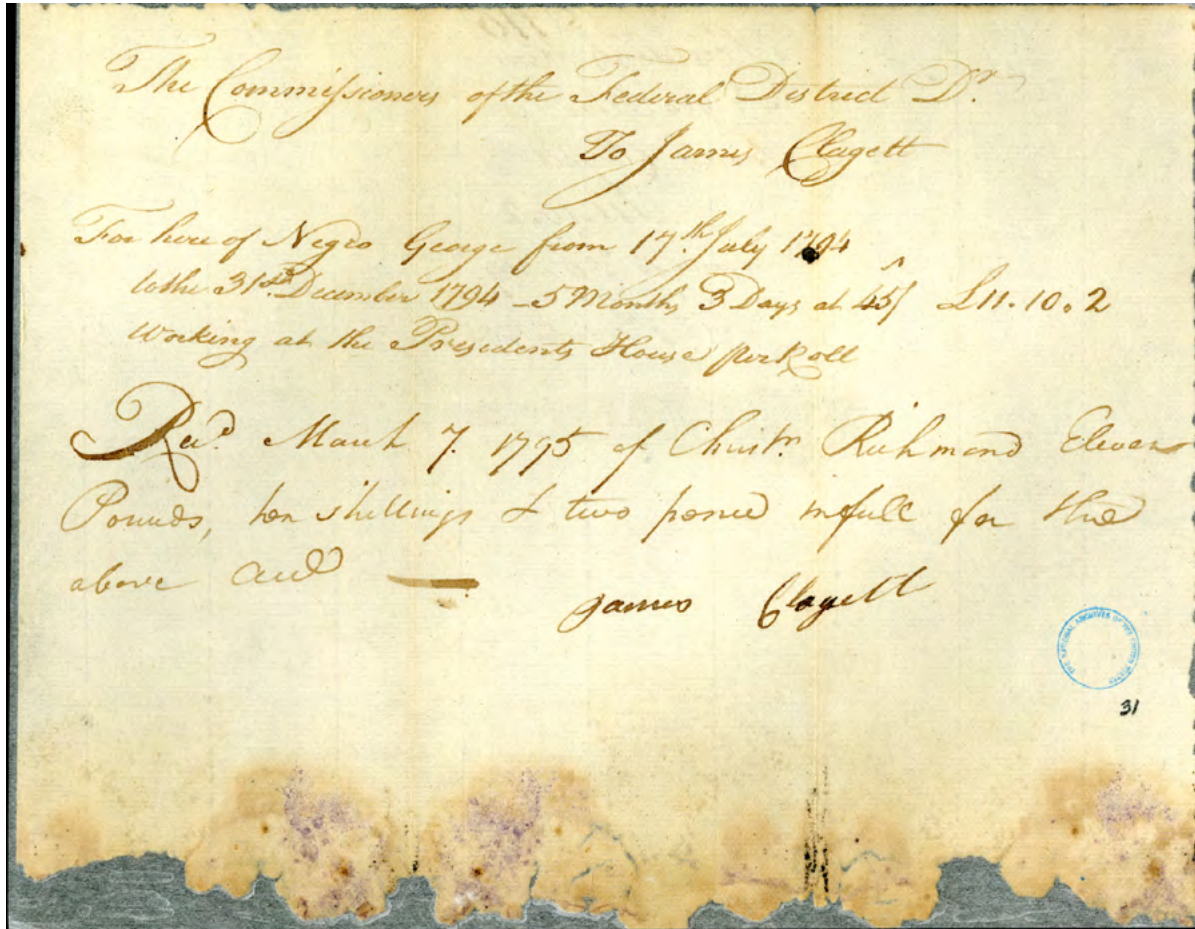 The Commissioners of the Federal District Dr.
To James Clagett
For hire of Negro George from 17th July 1794
to the 31st December 1794 - 5 Months 3 Days at 45/ £11.10.2
working at the Presidents House per Roll
Recd March 7. 1795 of Christr. Richmond Eleven
Pounds, ten shillings & two pence in full for the
above acct
James Clagett
THE NATIONAL ARCHIVES OF THE UNITED STATES
31